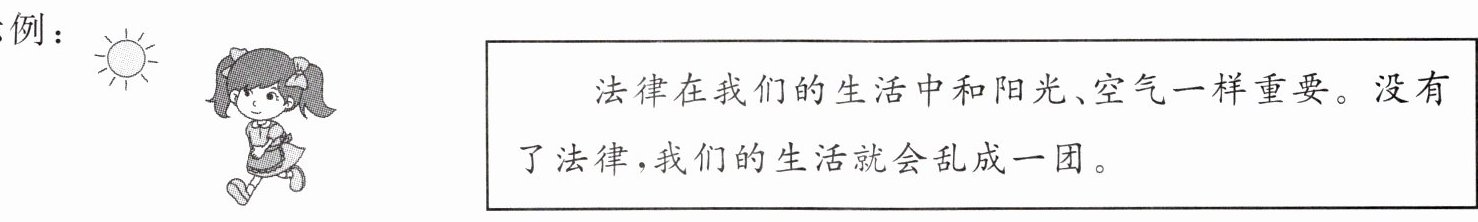 例：
法律在我们的生活中和阳光、空气一样重要。没有
了法律，我们的生活就会乱成一团。